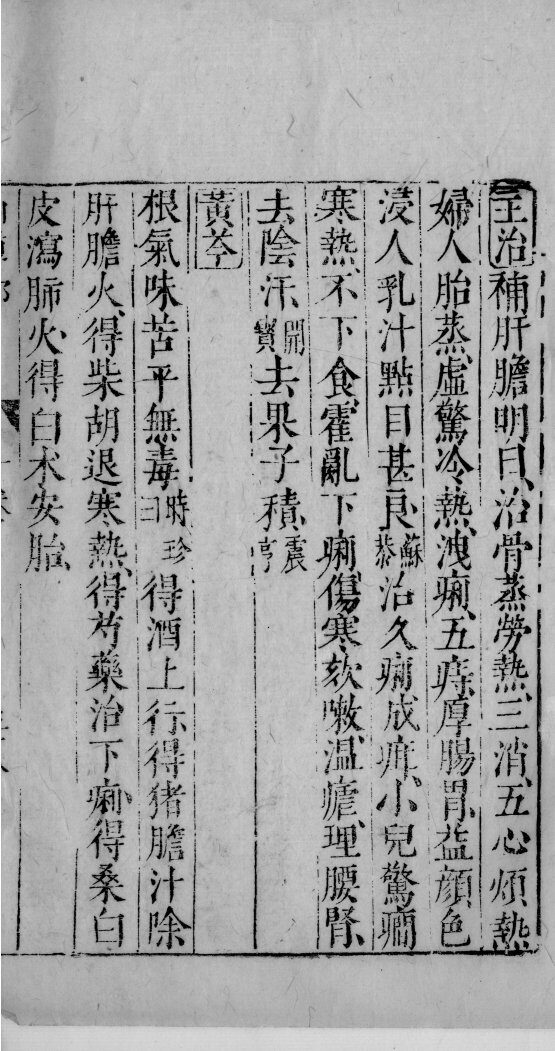 主治補肝膽明目治骨蒸勞熱三消五心煩熱
婦人胎蒸虛驚冷熱洩痢五痔厚腸胃益顏色
浸人乳汁點目甚良蘇恭治久痢成疳小兒驚癎
寒熱不下食霍亂下痢傷寒欬嗽温瘧理腰腎
去陰汗開寶去果子積震亨
黃芩
根氣味苦平無毒時珍曰得酒上行得猪膽汁除
肝膽火得柴胡退寒熱得芍藥治下痢得桑白
皮瀉肺火得白术安胎